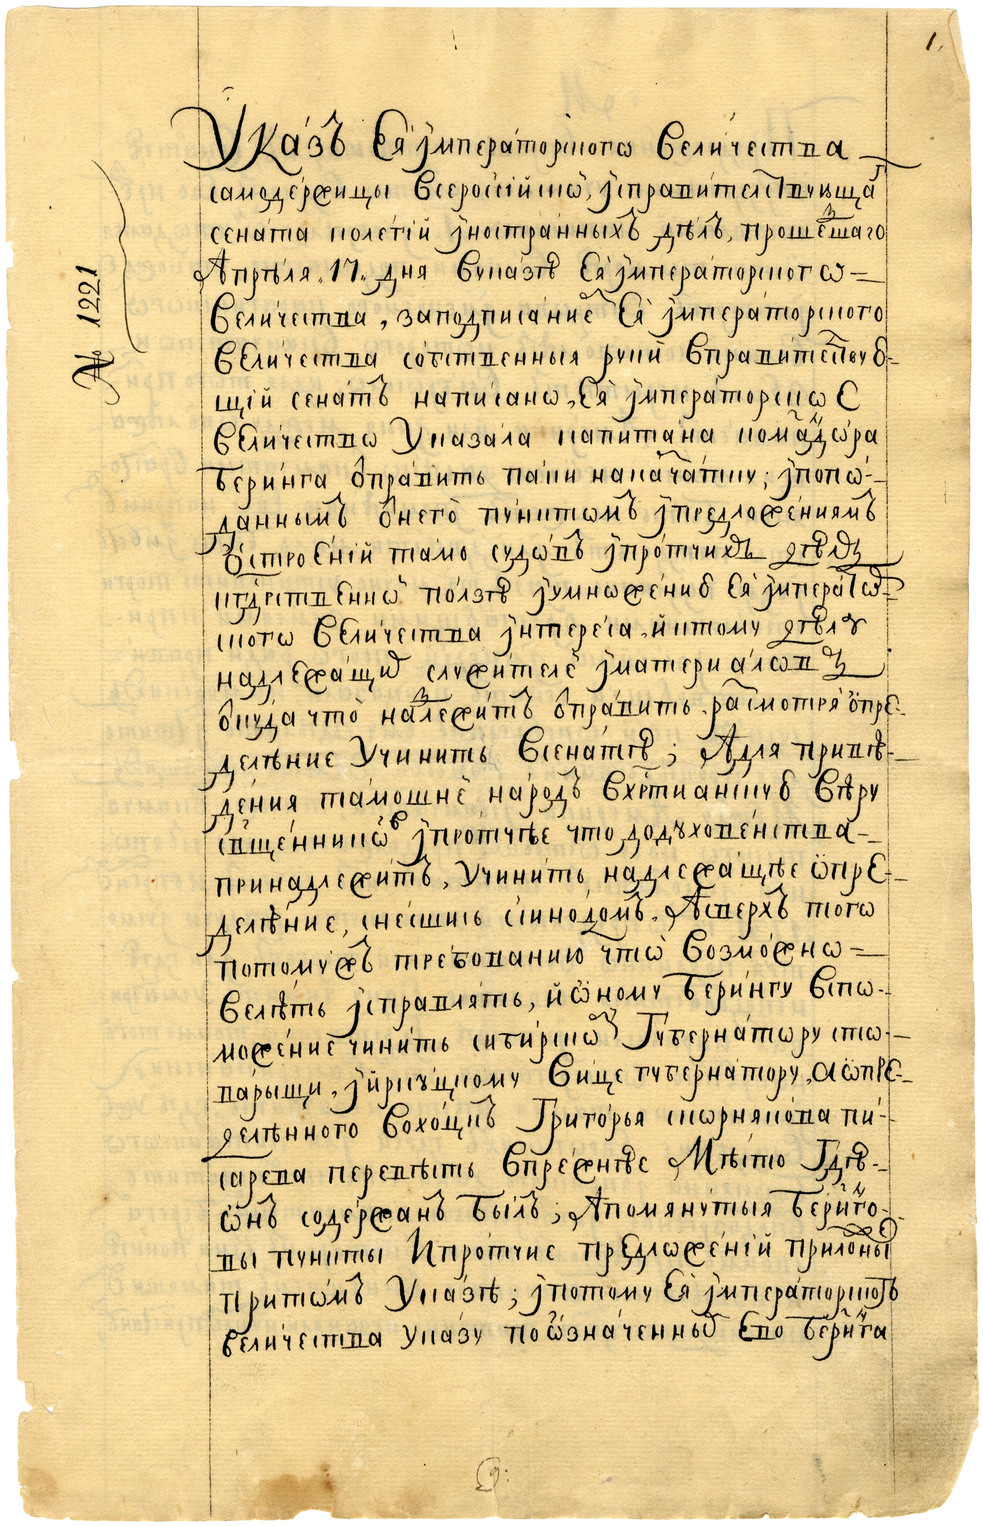 1.
№ 1221
Указъ Ея імператорского величества
самодержицы всероссійской, ізправителствующаг
сената колегій іностранныхъ дѣлъ, прошедшаго
Апрѣля .17. дня вуказѣ Ея імператорского
величества, заподписаниемъ Ея імператорского
величества собственныя руки вправителствую
щій сенатъ написано, Ея імператорское
величество Указала капитана командора
Беринга отправить паки накамчатку; іпопо
даннымъ отнего пунктомъ іпредложениямъ
остроеній тамо судовъ іпротчихъ дѣлъ
кгдрственной ползѣ іумножению Ея імператор
ского величества інтереса, иктому дѣлу
надлежащих служителей іматериаловъ
откуда что надлежитъ отправить, разсмотря опре
деление Учинить всенатѣ; Адля приве
дения тамошнего народъ вхртианскую вѣру
священниковъ іпротчее что додуховенства
принадлежитъ, Учинить надлежащее опре
деление, снесшись ссинодомъ. Асверхъ того
потомужъ требованию что возможно
велѣть ісправлять, и оному Берингу вспо
можение чинить сибирскому Губернатору сто
варыщи, ииркуцкому вице губернатору, аопре
деленного вохоцкъ Григорья скорнякова пи
сарева перевесть впрежнее Мѣсто Гдѣ
онъ содержанъ былъ; Апомянутыя Беринго
вы пункты Ипротчие предложеній приложены
притомъ Указѣ; іпотому Ея імператорского
величества указу поозначенному Ево Беринга